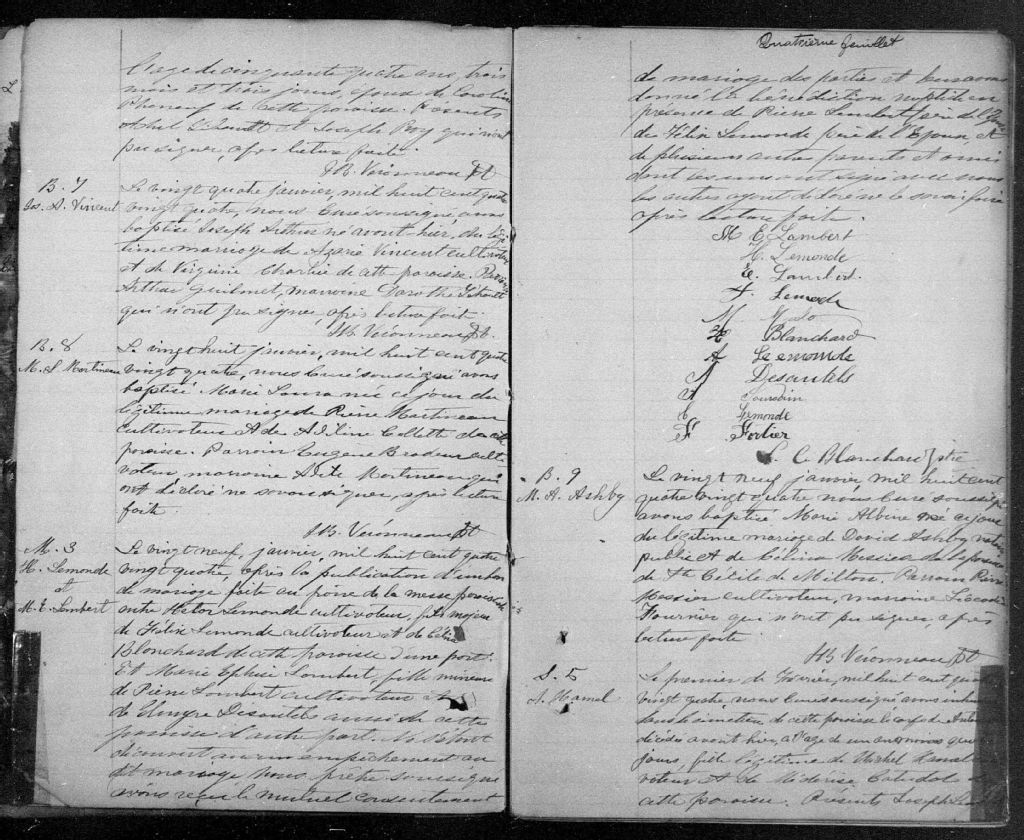 l'age de cinquante quatre ans, trois
mois et trois jours, époux de Caroline
Phaneuf de cette paroisse. Présents
et Joseph Roy qui n'ont
pu signer, après lecture faite.
J.B. Véronneau Pt
B. 7
Jos. A. Vincent
Le vingt quatre janvier, mil huit cent quatre
vingt quatre, nous Curé soussigné avons
baptisé Joseph Arthur né avant hier, du légi
time mariage de Azarie Vincent cultivateur
et de Virginie Charlie de cette paroisse. Parrain
Arthur Guilmet, marraine Dorothé
qui n'ont pu signer, après lecture faite.
J.B. Véronneau Pt.
B. 8
M. L. Martineau
Le vingt huit janvier, mil huit cent quatre
vingt quatre, nous Curé soussigné avons
baptisé Marie Laura née ce jour du
légitime mariage de Pierre Martineau
cultivateur et de Adéline Collette de cette
paroisse. Parrain Eugène Brodeur culti
vateur, marraine Martineau qui
ont déclaré ne savoir signer, après lecture
faite.
J.B. Véronneau Pt
M. 3
H. Lemonde
et
M. E. Lambert
Le vingt neuf, janvier, mil huit cent quatre
vingt quatre, après la publication d'un ban
de mariage faite au prône de la messe paroissiale
entre Hector Lemonde cultivateur, fils majeur
de Félix Lemonde cultivateur et de Célina
Blanchard de cette paroisse d'une part.
Et Marie Lambert, fille mineure
de Pierre Lambert cultivateur et
de Elmyre Désautels aussi de cette
paroisse d'autre part. Ne s'étant
découvert aucun empêchement au
dit mariage Nous, prêtre soussigné
avons reçu le mutuel consentement
Quatrième feuillet
de mariage des parties et leur avons
donné la bénédiction nuptiale en
présence de Pierre Lambert, père de
de Félix Lemonde père de l'Epoux, et
de plusieurs autres parents et amis
dont les uns ont signé avec nous
les autres ayant déclaré ne le savoir faire
après lecture faite.
M E Lambert
H. Lemonde
E. Lambert
F. Lemode
M
H Blanchard
A Lemonde
A Desautels
A Jourdin
C Lemonde
F Fortier
L. C Blanchard ptre
B. 9
M. A. Ashby
Le vingt neuf janvier mil huit cent
quatre vingt quatre nous Curé soussigné
avons baptisé Marie Albine née ce jour
du légitime mariage de David Ashby notaire
public et de Célina Messier de la paroisse
de Ste Cécile de Milton, Parrain Pierre
Messier cultivateur, marraine
Fournier qui n'ont pu signer après
lecture faite.
J.B. Véronneau Pt
S. 5
A. Hamel
Le premier de Février, mil huit cent quatre
vingt quatre nous Curé soussigné avons inhumé
dans le cimetière de cette paroisse le corps de
décédée avant hier, a l'age de un an, quatre
jours, fille légitime de Michel Hamel
vateur et de Médérise
cette paroisse. Présents Joseph